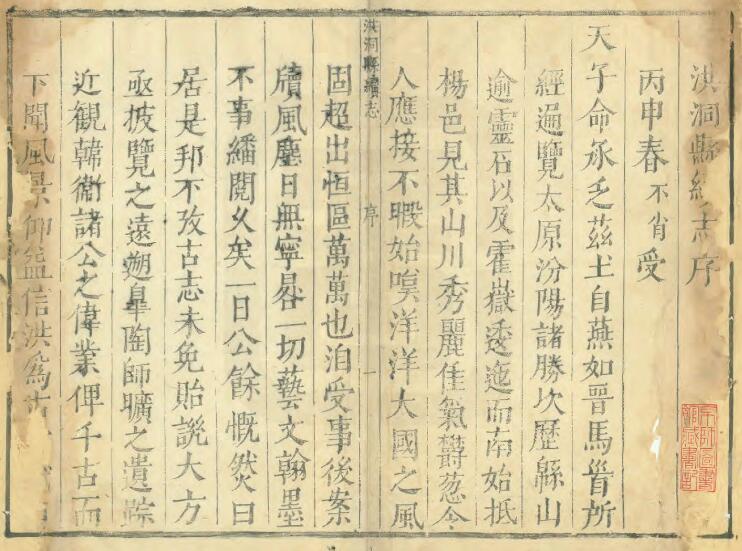 洪洞縣續志序
丙申春不省受
天子命承乏茲土自燕如晉馬首所
經遍覽太原汾陽諸勝次歷緜山
逾靈石以及霍嶽逶迤而南始抵
楊邑見其山川秀麗佳氣欝葱令
人應接不暇始嘆洋洋大國之風
固超出恒區萬萬也洎受事後案
洪洞縣續志 序 一
牘風塵日無寧晷一切藝文翰墨
不事繙閱久矣一日公餘慨然曰
居是邦不攷古志未免貽誚大方
亟披覽之遠遡臯陶師曠之遺踪
近觀韓衛諸公之偉業俾千古而
下聞風景仰益信洪爲古